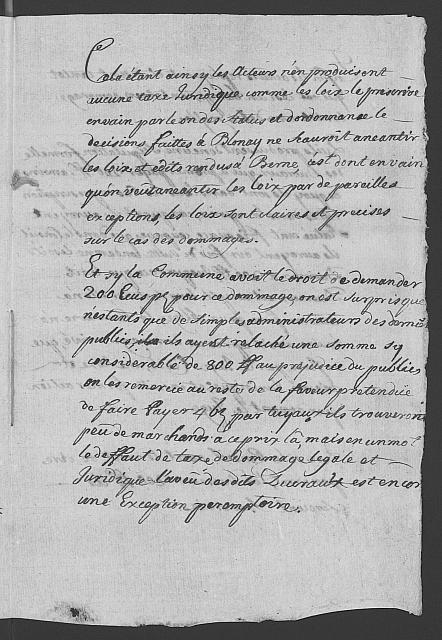 Cela étant ainsy les Acteurs n'en produisent
aucune taxe Juridique, comme les loix le prescrive
envain parle on des Status et dordonnances le
decisions faittes à Blonay ne sauroit aneantir
les loix et edits rendus à Berne, c'est dont en vain
qu'on veut aneantir les loix par de pareilles
exceptions, les loix sont claires et precises
sur le cas des dommages.
Et sy la Commune avoit le droit de demander
200 Ecus pour ce dommage, on est surpris que
n'estants que de simples administrateurs des deniers
publics, ils ayent relaché une somme sy
considerable de 800 ff au prejudice du public,
on les remercie au reste de la faveur pretendüe
de faire Payer 4 bz par tuyaux, ils trouveron
peu de marchands a ce prix la, mais en un mot
le deffaut de taxe de dommage legale et
Juridique l'aveu des dits Ducraux est encor
une Exception peremptoire.